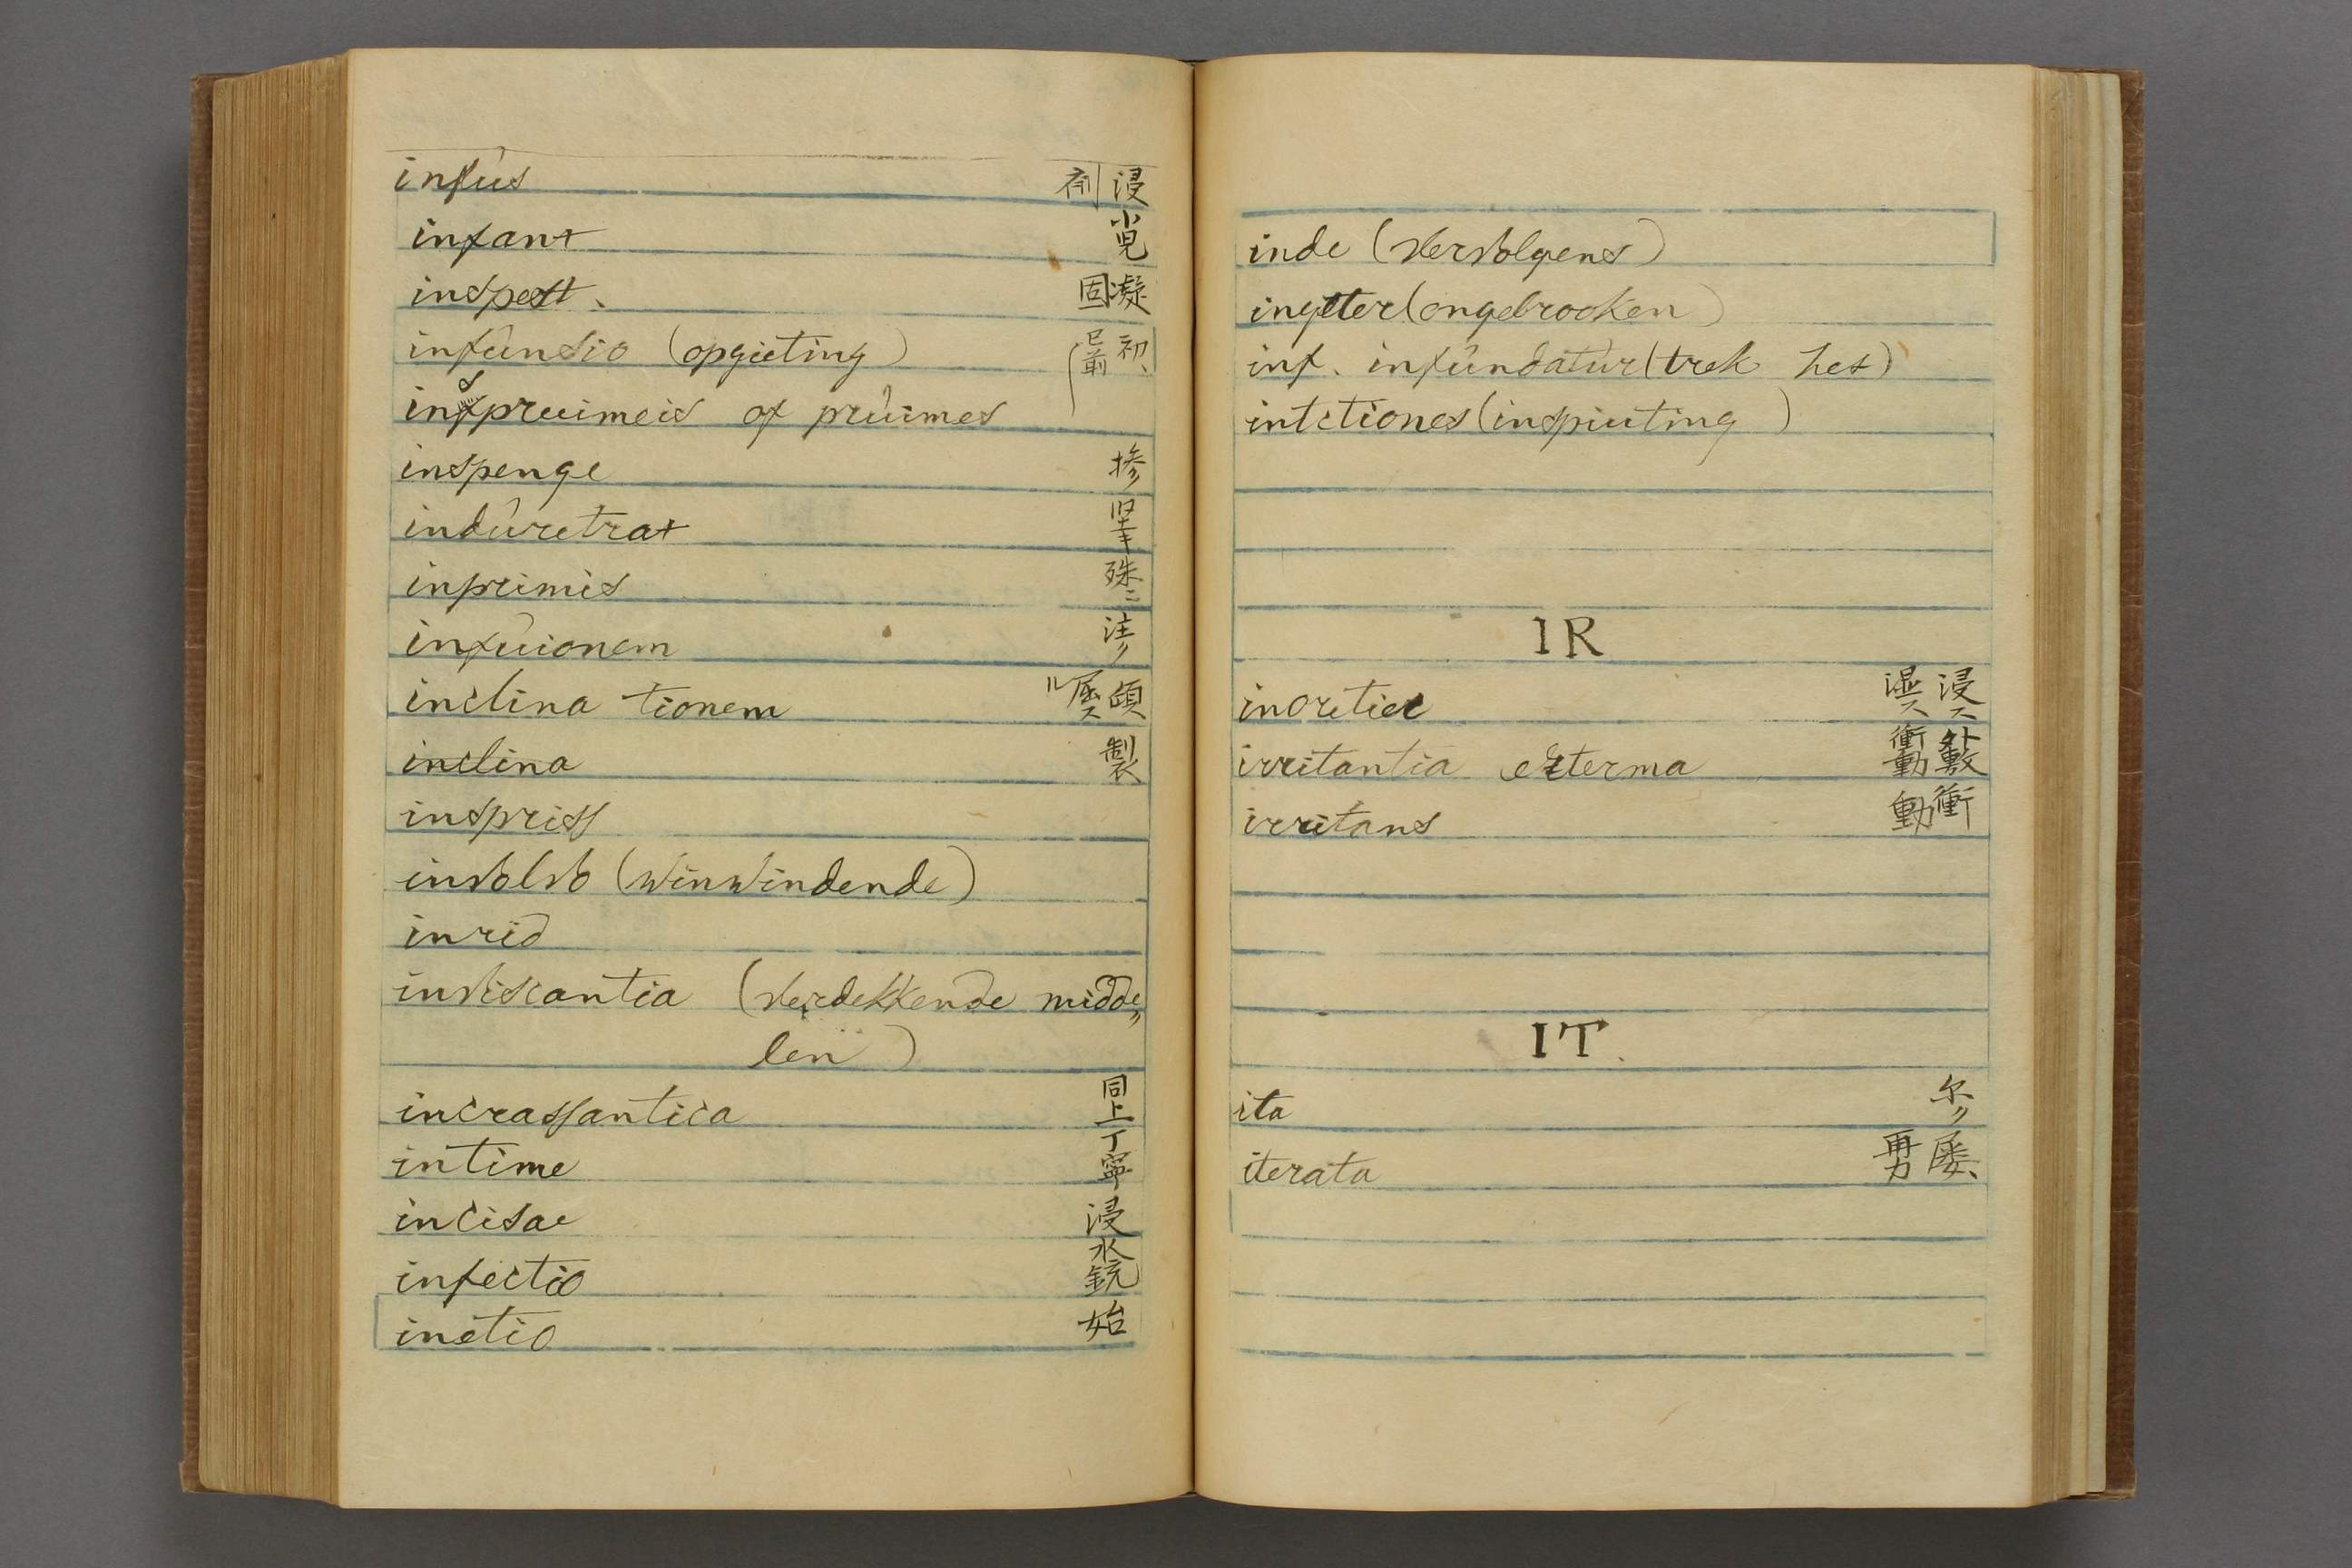 infûs 浸剤
infant 小児
inspest. 凝固
infûnsio (opgieting)
inspruimeis of prûimes 初、已前
inspenge 摻ク
indûretrat
inprimis 殊ニ
infuionem 注ク
inclina tionem 傾屈スル
inclina 製
inspriss
involvo (winwindende)
inrid
inviscantia (verdekkende midde〃
len)
incrassantica 同上
intime 丁寧
incisae 浸
infectio 水銃
inetio 始
inde (vervolgens)
ingeter (ongebrooken)
inf. infûndatûr (trek het)
intctiones (inspiuting)
IR
inoretiec 浸ス湿ス
irritantia exterma 外敷衝動
irritans 衝動
IT.
ita 尓ク
iterata 屡、再